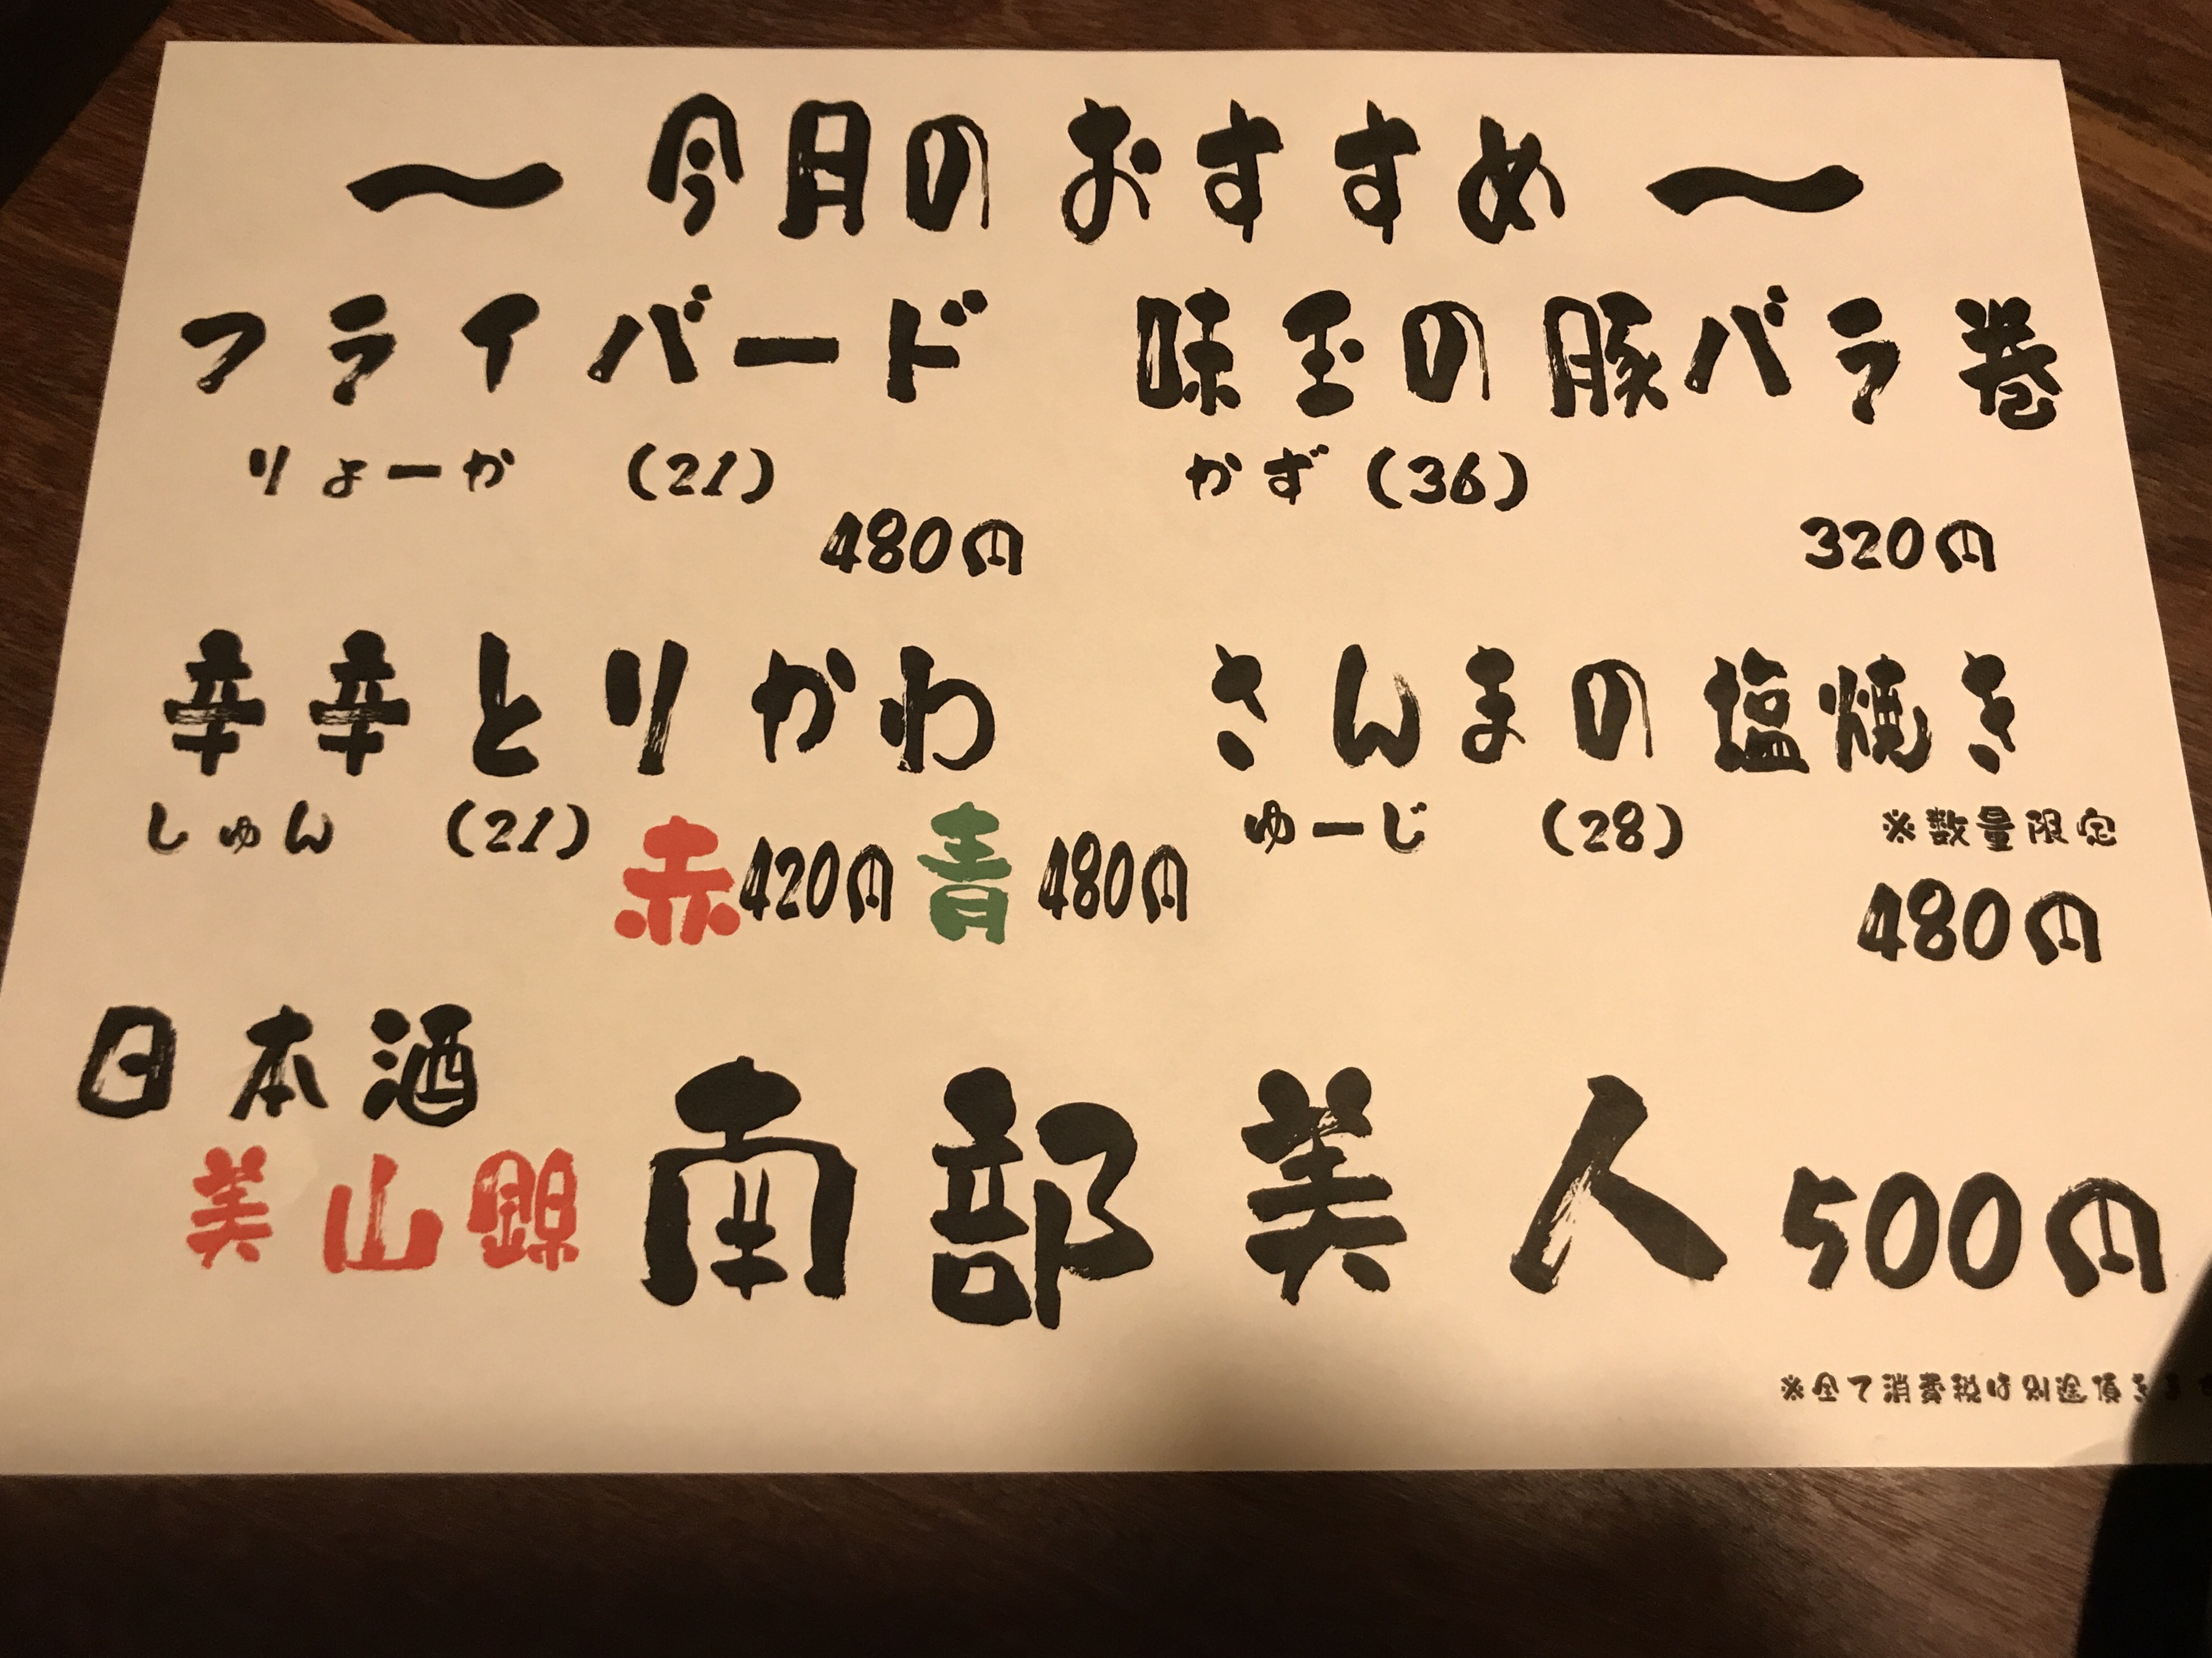 ～ 今月のおすすめ ～
フライバード
りょーか (21)
480円
味玉の豚バラ巻
かず (36)
320円
辛辛とりかわ
しゅん (21)
赤420円 青480円
さんまの塩焼き
ゆーじ (28)
※数量限定
480円
日本酒
美山錦
南部美人 500円
※全て消費税は別途頂きま